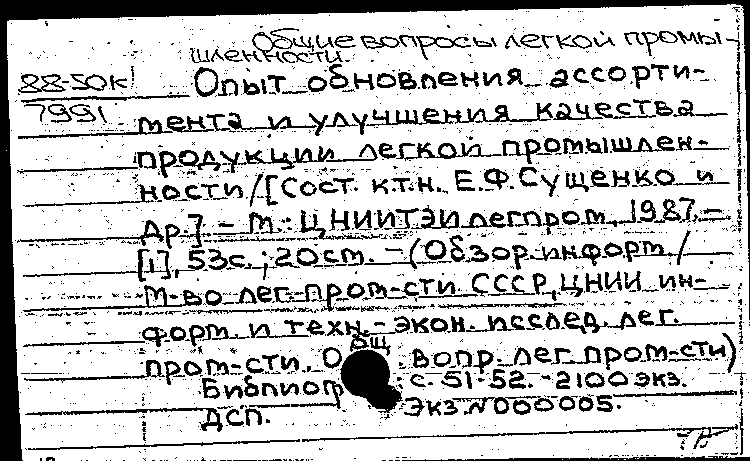 Общие вопросы легкой промы-
шленности.
88-50к
7991
Опыт обновления ассорти-
мента и улучшения качества
продукции легкой промышлен-
ности/[Сост. к.т.н. Е.Ф.Сущенко и
др.] – М.: ЦНИИТЭИлегпром, 1987. –
[1], 53с.; 20см. – (Обзор.информ. /
М-во лег. пром-сти СССР, ЦНИИ ин-
форм. и техн.-экон. исслед. лег.
пром-сти. Общ. вопр. лег. пром-сти)
: с. 51-52. - 2100 экз.
ДСП. Экз.N000005.